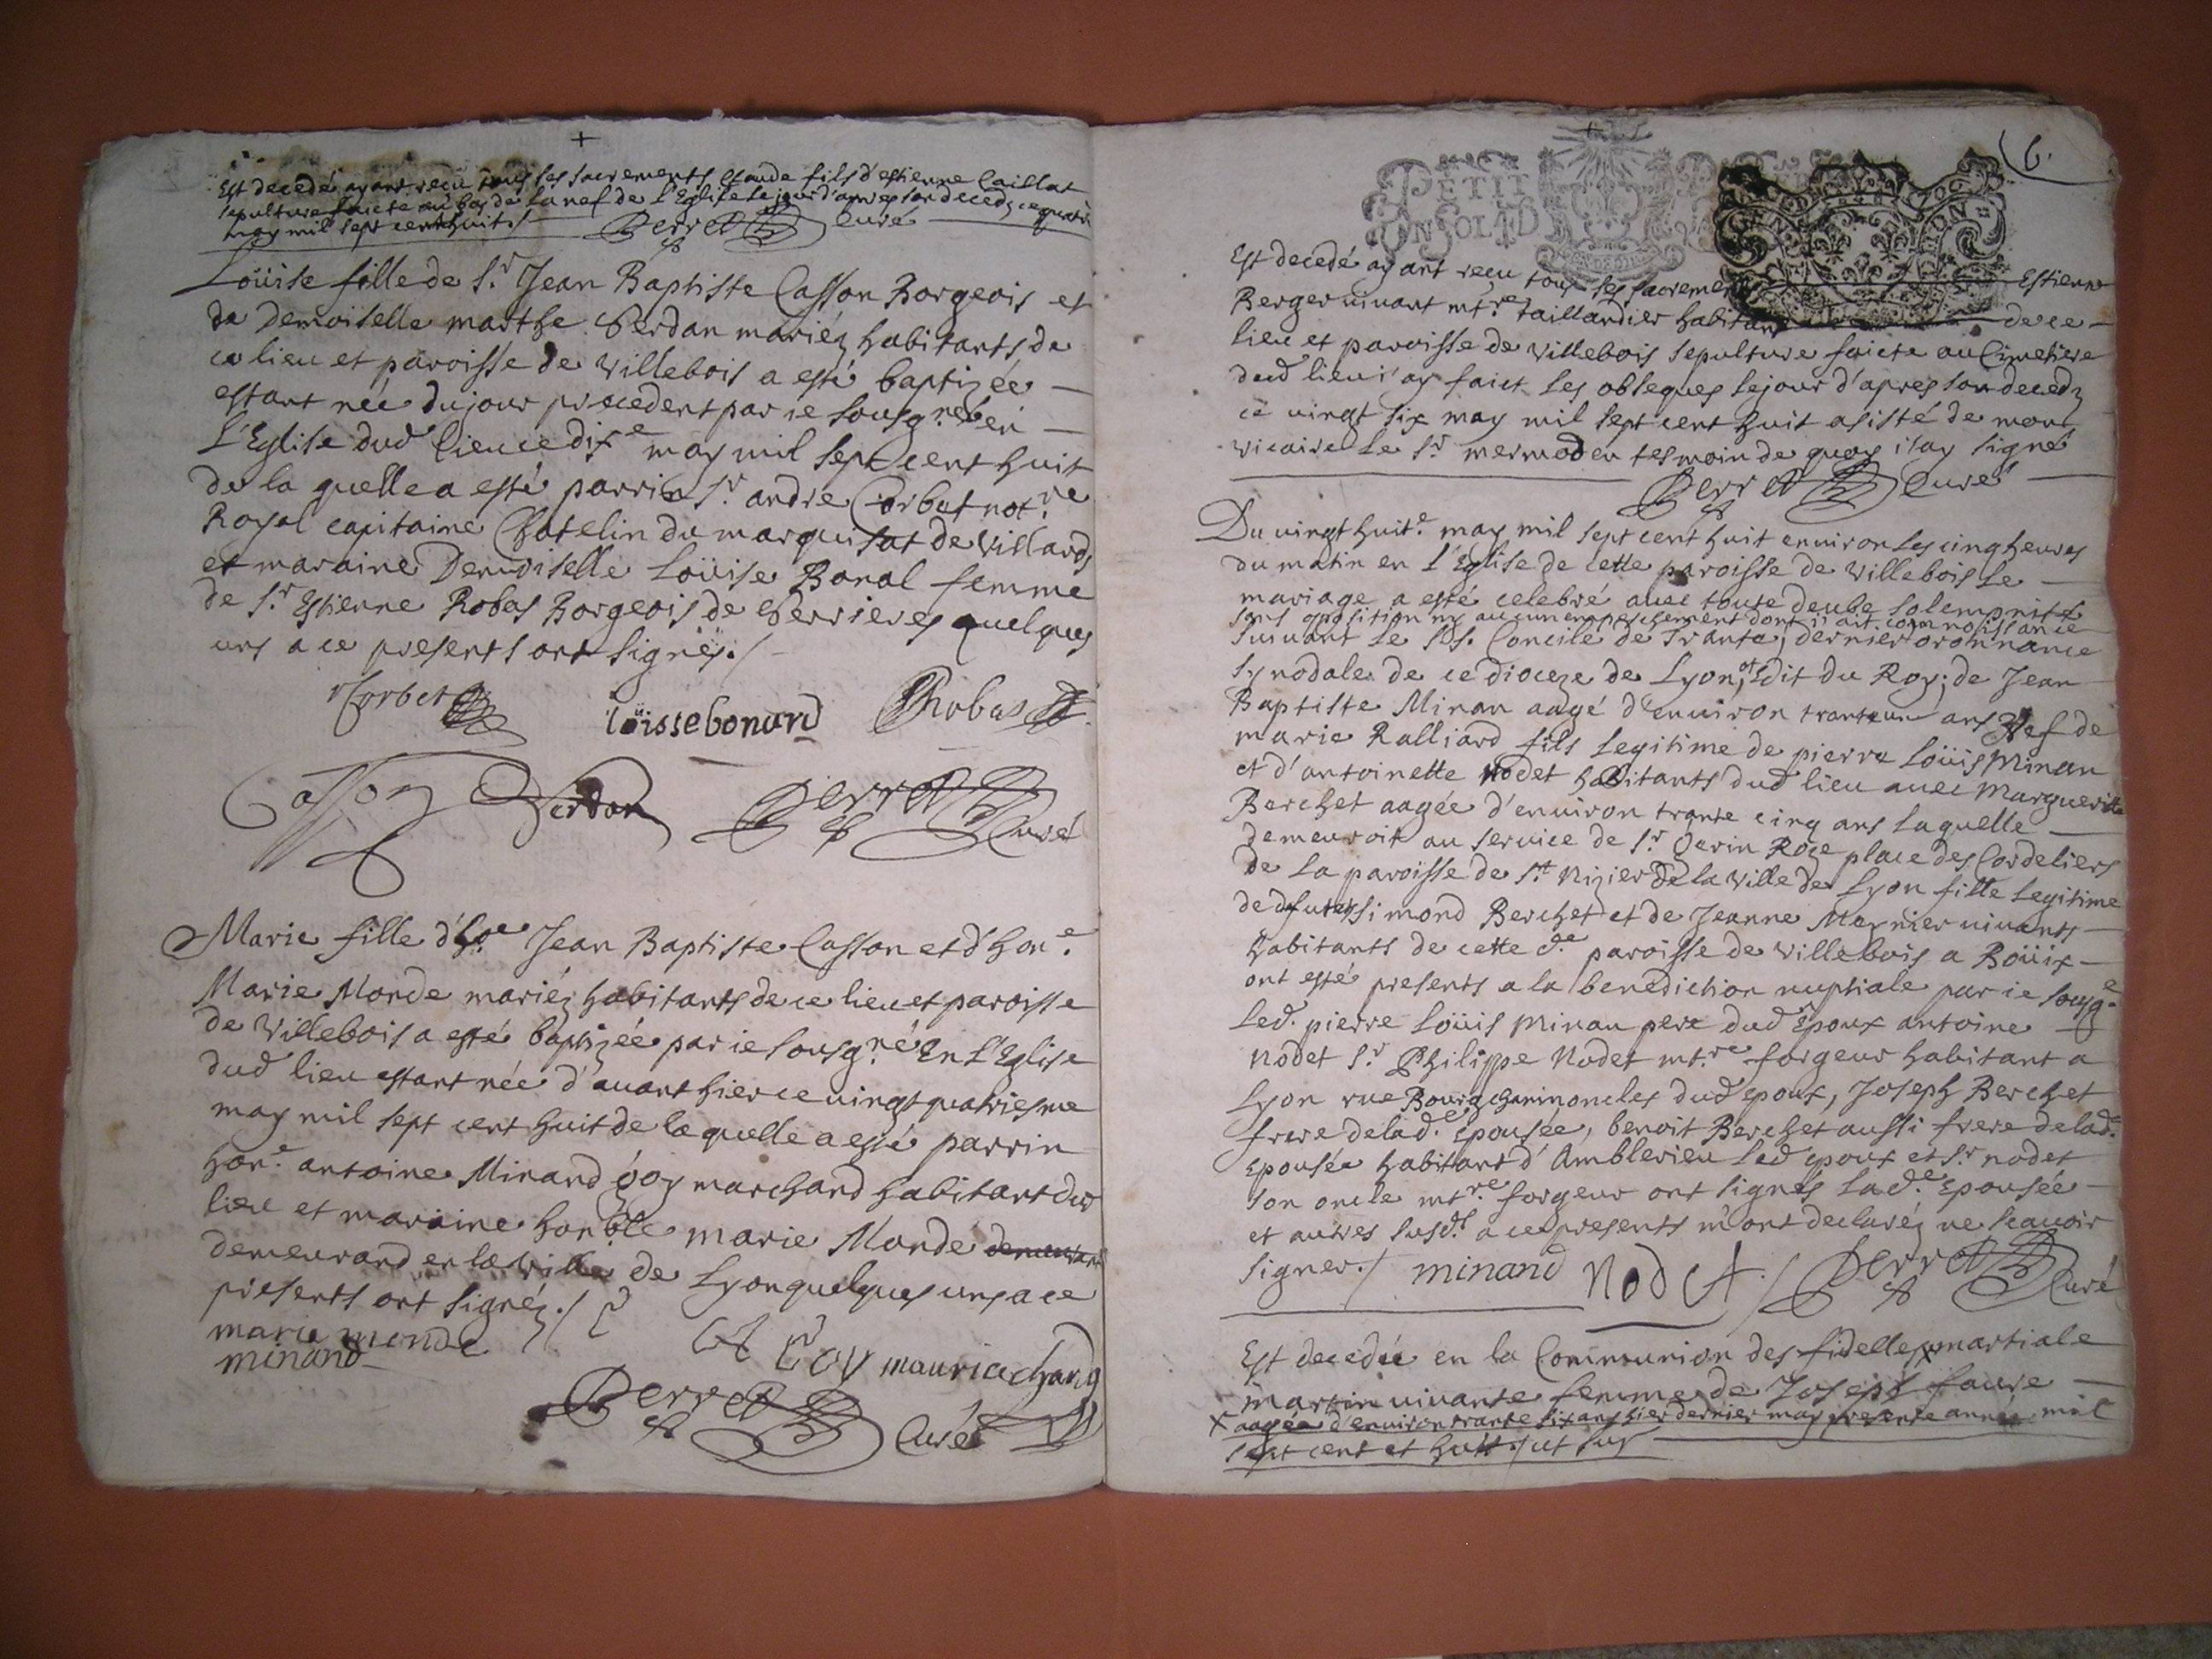 Est decedé ayant reçu tous ses sacrements Claude fils d'estienne Caillat
sepulture faicte au bas de la nef de l'Eglise le jour d'apres son decedz ce quatre
may mil sept cent huit ./ Perret Curé
Loüise fille de Sr. Jean Baptiste Casson Borgeois et
de Demoiselle marthe Verdan mariéz habitants de
ce lieu et paroisse de villebois a esté baptizée
estant née du jour precedent par ie sousg.né en
l'Eglise dud lieu ce dix.e may mil sept cent huit
de la quelle a esté parrin Sr. andre Corbet not.re
Royal capitaine Chatelin du marquisat de Villards
et maraine Demoiselle Loüise Bonal femme
de Sr. Estienne Robas Borgeois de Serrieres quelques
uns a ce presents ont signéz ./
Corbet loüisse bonard Robas
Casson Verdan Perret Curé
Marie fille d'ho.e Jean Baptiste Casson et d'hon.e
Marie Monde mariéz habitants de ce lieu et paroisse
de Villebois a esté baptizée par ie sousg.né En l'Eglise
dud lieu estant née d'auant hier ce uingt quatriesme
may mil sept cent huit de la quelle a esté parrin
hon.e antoine Minand goy marchand habitant dud
lieu et maraine honble marie Monde demeurant
demeurand en la ville de Lyon quelques uns a ce
presents ont signéz ./
marie monde
minand
mauria chand
Perret Curé
6.
PETIT
EN SOL 4 D
GENERALITE LYON
Est decedé ayant reçu tous ses sacrements Estienne
Berger uiuant mt.re taillandier habitant de ce
lieu et paroisse de Villebois sepulture faicte au Cimetiere
dud lieu i'ay faict les obseques le jour d'apres son decedz
ce uingt six may mil sept cent huit asisté de mon
vicaire le Sr. mermod en tesmoin de quoy i'ay signé
Perret Curé
Du uingt huit.e may mil sept cent huit enuiron les cinq heures
du matin en l'Eglise de cette paroisse de Villebois le
mariage a esté celebré auec toute deube solempnité
sans oposition ny aucun empeschement dont ii ait connoissance
suiuant le St. Concile de Trante, dernier ordonnance
synodale de ce dioceze de Lyon, et Edit du Roy; de Jean
Baptiste Minan aagé d'enuiron tranteun ans Vef de
marie Ralliard fils legitime de pierre Loüis Minan
et d'antoinette Nodet habitants dud lieu auec Marguerite
Berchet aagée d'enuiron trante cinq ans laquelle
demeuroit au seruice de Sr. Perin Roze place des Cordeliers
de la paroisse de St Nizier de la Ville de Lyon fille legitime
de defuncts simond Berchet et de Jeanne Magnier uiuants
habitants de cette d.e paroisse de Villebois a Boüix
ont esté presents a la benediction nuptiale par ie sousg.e
Led. pierre Loüis Minan pere dud Epoux antoine
Nodet Sr. Philippe Nodet mt.re forgeur habitant a
Lyon rue Bourgchanin oncles dud epoux, Joseph Berchet
frere de lad.e Epousée, benoit Berchet aussi frere de lad.e
Epousée habitant d'Amblerieu led epoux et Sr. nodet
son oncle mt.re forgeur ont signés lad.e Epousée
et autres susd.s a ce presents m'ont declaréz ne scauoir
signer ./ minand Nodet ./ Perret Curé
Est decedée en la Communion des fidelles x martiale
martin uiuante femme de Joseph faure
x aagée d'enuiron trante six ans hier dernier may presente année mil
sept cent et huit ./ ut sus